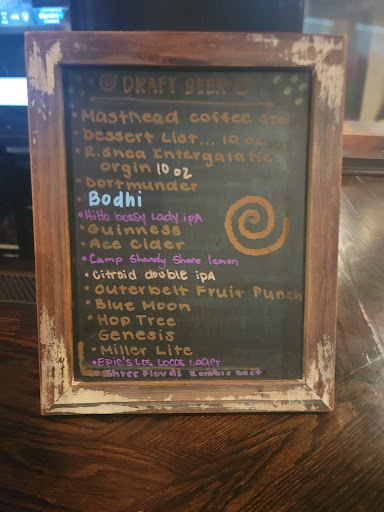 DRAFT BEER
Masthead coffee
Dessert List... 10 oz
R.Shea Intergalatic
orgin 10 oz
Dortmunder
Bodhi
HiHo bossy Lady ipA
Guinness
Ace Cider
Camp Shandy Shore lemon
Citroid double ipA
Outerbelt Fruit Punch
Blue Moon
Hop Tree
Genesis
Miller Lite
Epic's Los Locos Lager
Three Floyds Zombie Dust